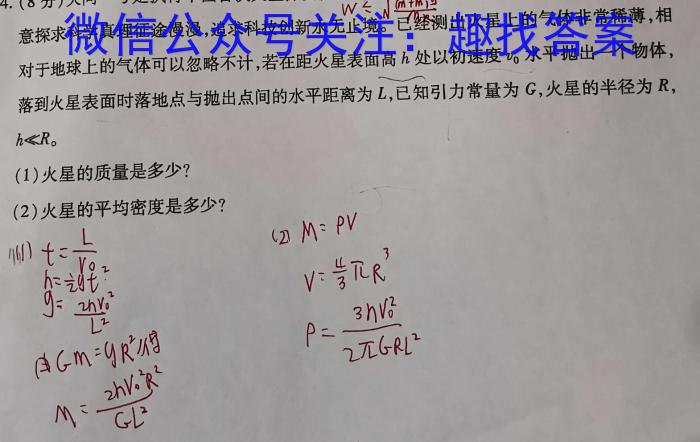 4.(8分)天问一号是执行中国首次火星
W =
意探求科学真理征途漫漫,追求科技创新永无止境。已经测出火星上的气体非常稀薄,相
微信公众号关注:趣找答案
对于地球上的气体可以忽略不计,若在距火星表面高h处以初速度v₀水平抛出一个物体,
落到火星表面时落地点与抛出点间的水平距离为L,已知引力常量为G,火星的半径为R,
h≪R。
(1)火星的质量是多少?
(2)火星的平均密度是多少?
(1) t=L/V₀
h=½gt²
g=2hV₀²/L²
由GM=gR²得
M=2hV₀²R²/GL²
(2) M=ρV
V=4/3πR³
ρ=3hV₀²/2πGRL²